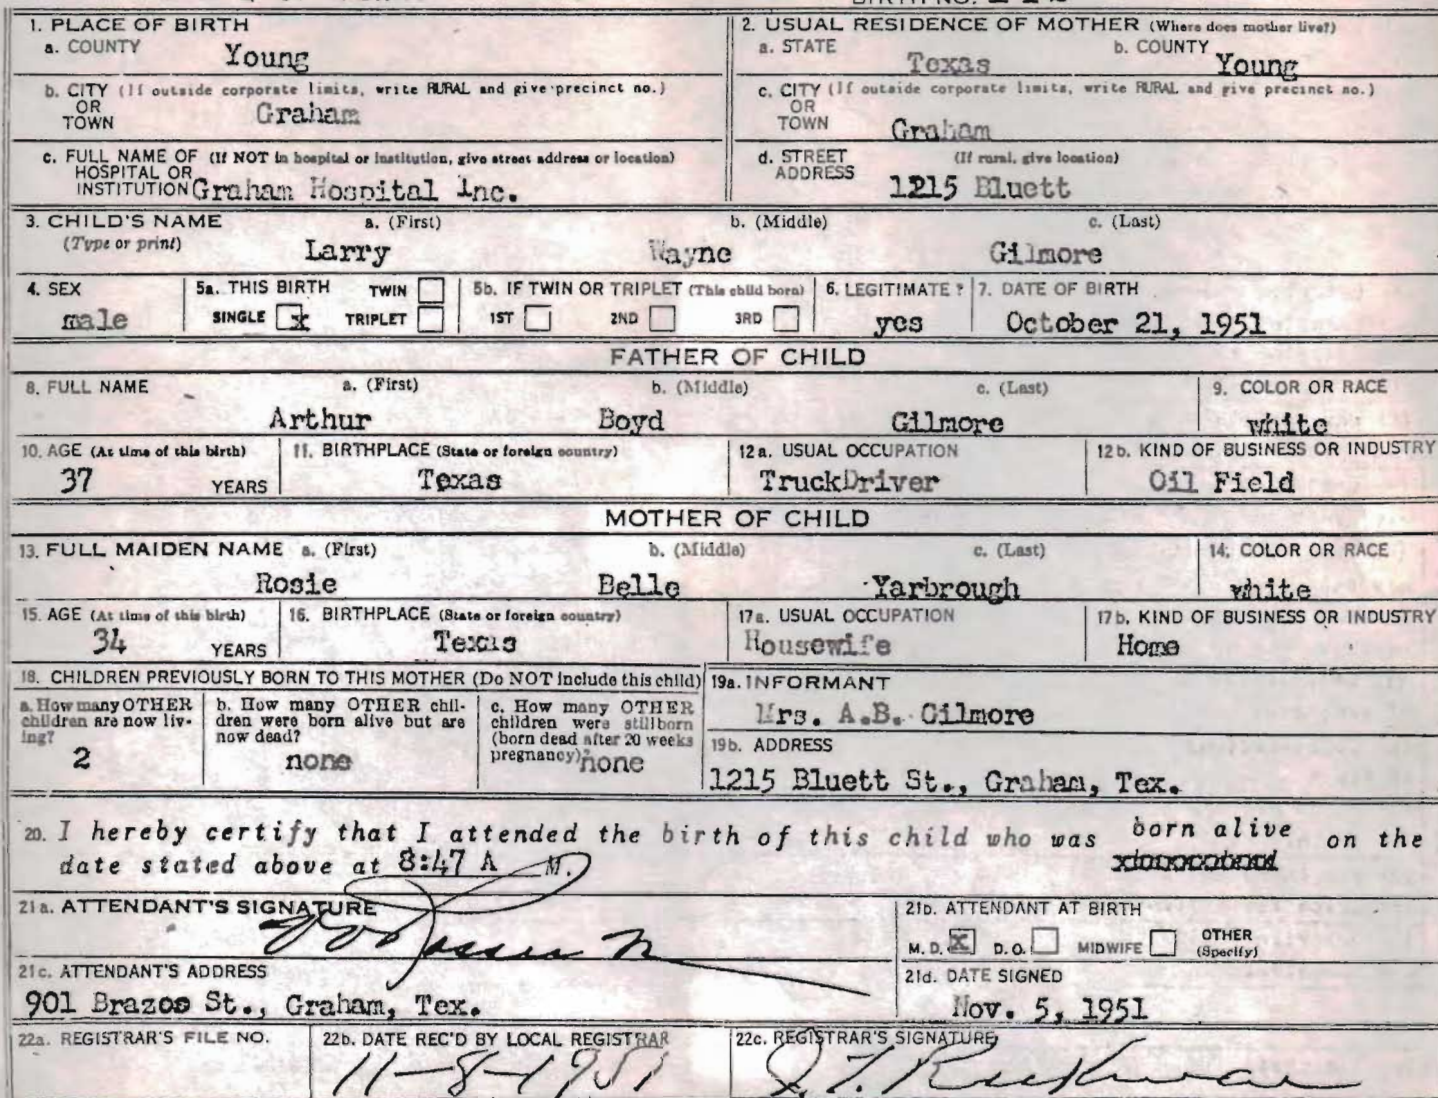 BIRTH NO.
1. PLACE OF BIRTH
a. COUNTY
Young
b. CITY (If outside corporate limits, write RURAL and give precinct no.)
OR
TOWN
Graham
c. FULL NAME OF (If NOT in hospital or institution, give street address or location)
HOSPITAL OR
INSTITUTION Graham Hospital Inc.
2. USUAL RESIDENCE OF MOTHER (Where does mother live?)
a. STATE
Texas
b. COUNTY
Young
c. CITY (If outside corporate limits, write RURAL and give precinct no.)
OR
TOWN
Graham
d. STREET (If rural, give location)
ADDRESS
1215 Bluett
3. CHILD'S NAME a. (First) b. (Middle) c. (Last)
(Type or print) Larry Wayne Gilmore
4. SEX
male
5a. THIS BIRTH TWIN
SINGLE x TRIPLET
5b. IF TWIN OR TRIPLET (This child born)
1ST 2ND 3RD
6. LEGITIMATE?
yes
7. DATE OF BIRTH
October 21, 1951
FATHER OF CHILD
8. FULL NAME a. (First) b. (Middle) c. (Last)
Arthur Boyd Gilmore
9. COLOR OR RACE
white
10. AGE (At time of this birth)
37 YEARS
11. BIRTHPLACE (State or foreign country)
Texas
12a. USUAL OCCUPATION
TruckDriver
12b. KIND OF BUSINESS OR INDUSTRY
Oil Field
MOTHER OF CHILD
13. FULL MAIDEN NAME a. (First) b. (Middle) c. (Last)
Rosie Belle Yarbrough
14. COLOR OR RACE
white
15. AGE (At time of this birth)
34 YEARS
16. BIRTHPLACE (State or foreign country)
Texas
17a. USUAL OCCUPATION
Housewife
17b. KIND OF BUSINESS OR INDUSTRY
Home
18. CHILDREN PREVIOUSLY BORN TO THIS MOTHER (Do NOT include this child)
a. How many OTHER
children are now liv-
ing?
2
b. How many OTHER chil-
dren were born alive but are
now dead?
none
c. How many OTHER
children were stillborn
(born dead after 20 weeks
pregnancy)? none
19a. INFORMANT
Mrs. A.B. Gilmore
19b. ADDRESS
1215 Bluett St., Graham, Tex.
20. I hereby certify that I attended the birth of this child who was born alive on the
date stated above at 8:47 A M.
21a. ATTENDANT'S SIGNATURE
21b. ATTENDANT AT BIRTH
M. D. X D. O. MIDWIFE OTHER
(Specify)
21c. ATTENDANT'S ADDRESS
901 Brazos St., Graham, Tex.
21d. DATE SIGNED
Nov. 5, 1951
22a. REGISTRAR'S FILE NO.
22b. DATE REC'D BY LOCAL REGISTRAR
11-8-1951
22c. REGISTRAR'S SIGNATURE